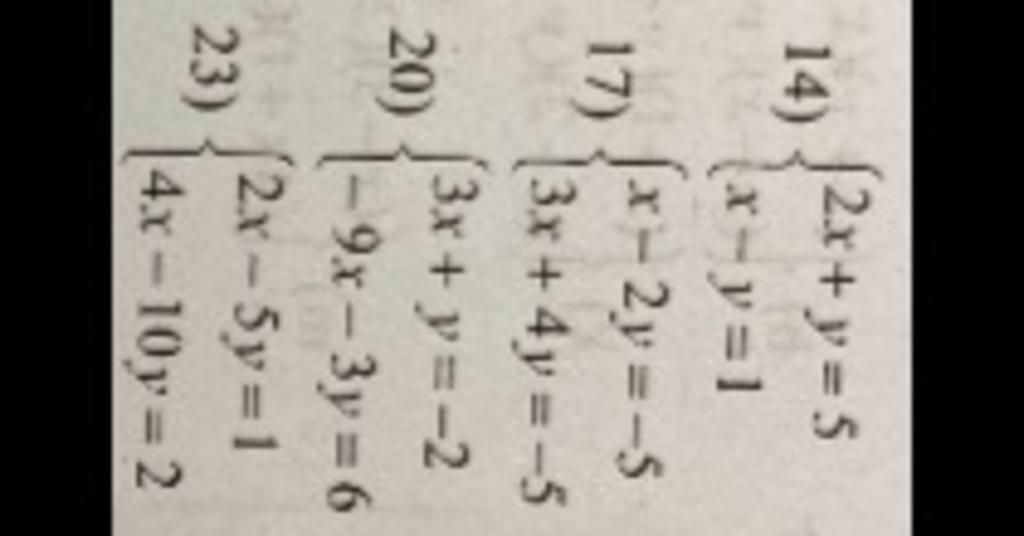 14) { 2x + y = 5
x - y = 1
17) { x - 2y = -5
3x + 4y = -5
20) { 3x + y = -2
-9x - 3y = 6
23) { 2x - 5y = 1
4x - 10y = 2